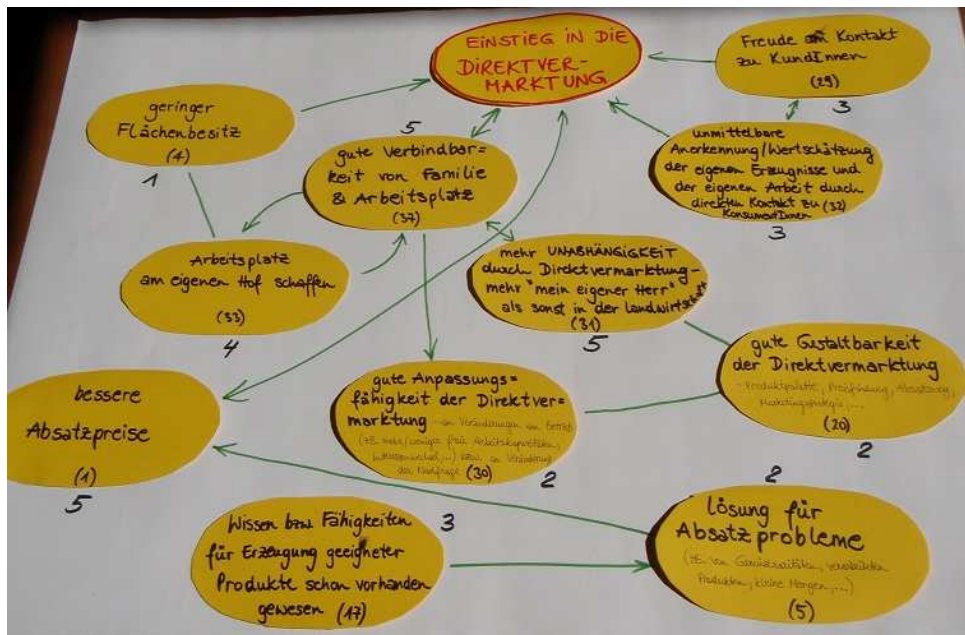 EINSTIEG IN DIE
DIREKTVER-
MARKTUNG
Freude am Kontakt
zu KundInnen
(29)
3
geringer
Flächenbesitz
(4)
1
5
gute Verbindbar=
keit von Familie
& Arbeitsplatz
(37)
unmittelbare
Anerkennung/Wertschätzung
der eigenen Erzeugnisse und
der eigenen Arbeit durch
direkten Kontakt zu (32)
KonsumentInnen
3
Arbeitsplatz
am eigenen Hof schaffen
(33)
4
mehr UNABHÄNGIGKEIT
durch Direktvermarktung-
mehr "mein eigener Herr"
als sonst in der Landwirtschaft
(31)
5
gute Gestaltbarkeit
der Direktvermarktung
- Produktpalette, Preisführung, Absatzweg,
Marketingstrategie,...
(20)
2
bessere
Absatzpreise
(1)
5
gute Anpassungs=
fähigkeit der Direktver=
marktung - an Veränderungen am Betrieb
(zB. mehr/weniger freie Arbeitskapazitäten,
...) bzw. an Veränderung
der Nachfrage (30)
2
Wissen bzw. Fähigkeiten
für Erzeugung geeigneter
Produkte schon vorhanden
gewesen (17)
3
2
lösung für
Absatzprobleme
(zB. von verarbeiteten
Produkten, kleine Mengen,...)
(5)